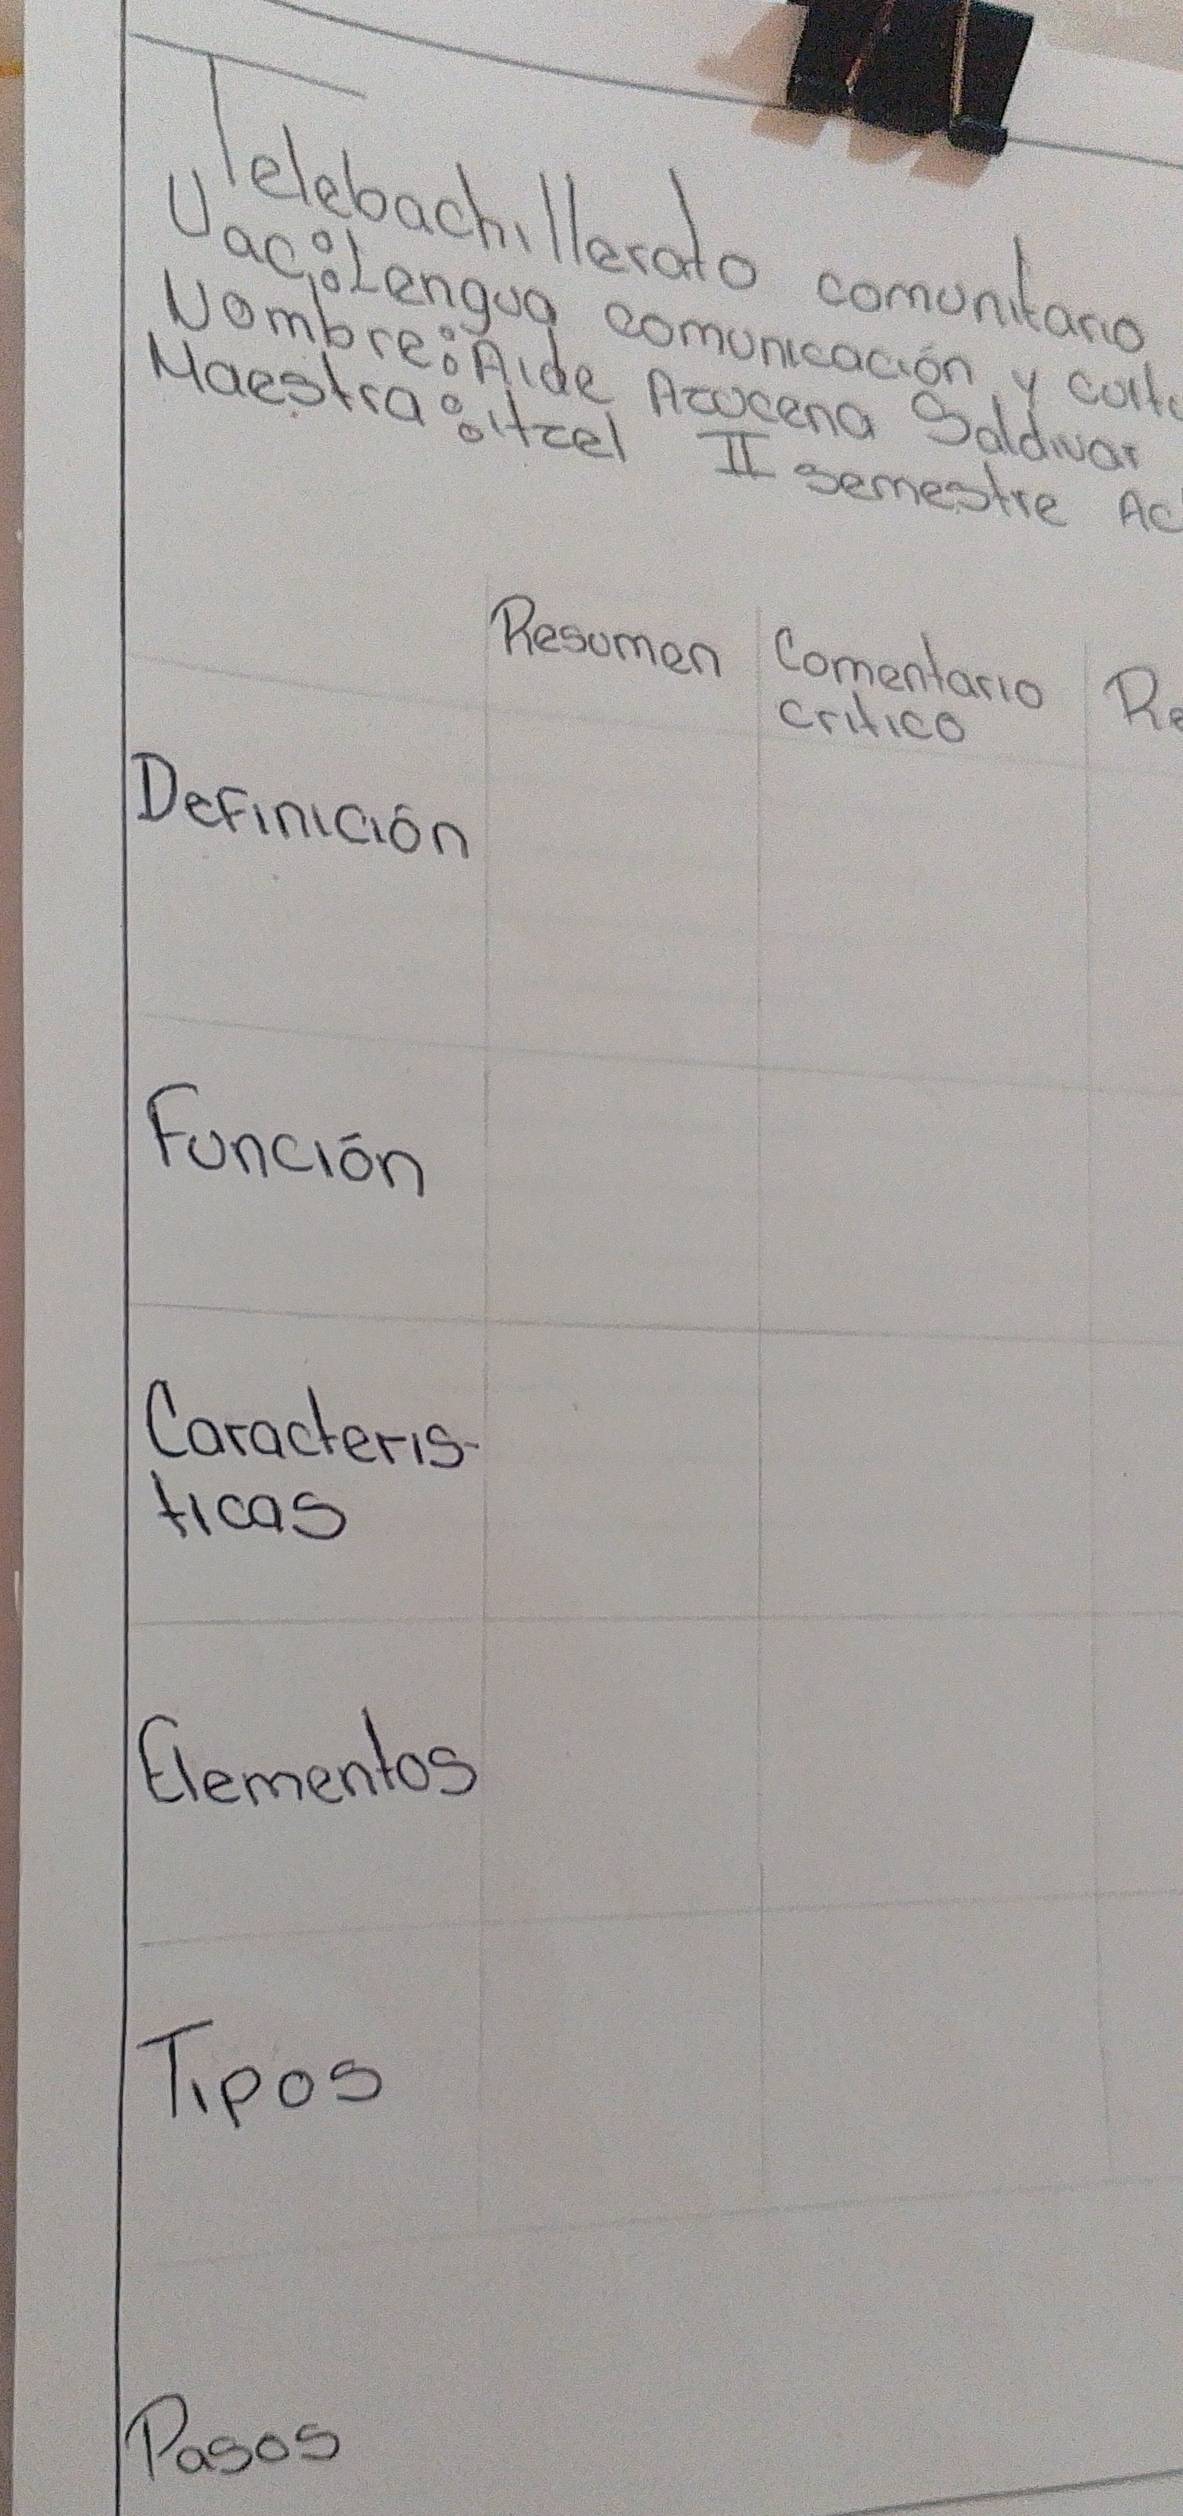 Telebachillerato comunitario
Uac: Lengua comunicación y
Nombre: Aide Azucena Saldivar
Maestra: Itzel II semestre
Resumen Comentario
critico
Definición
Función
Caracteris-
ticas
Elementos
Tipos
Pasos